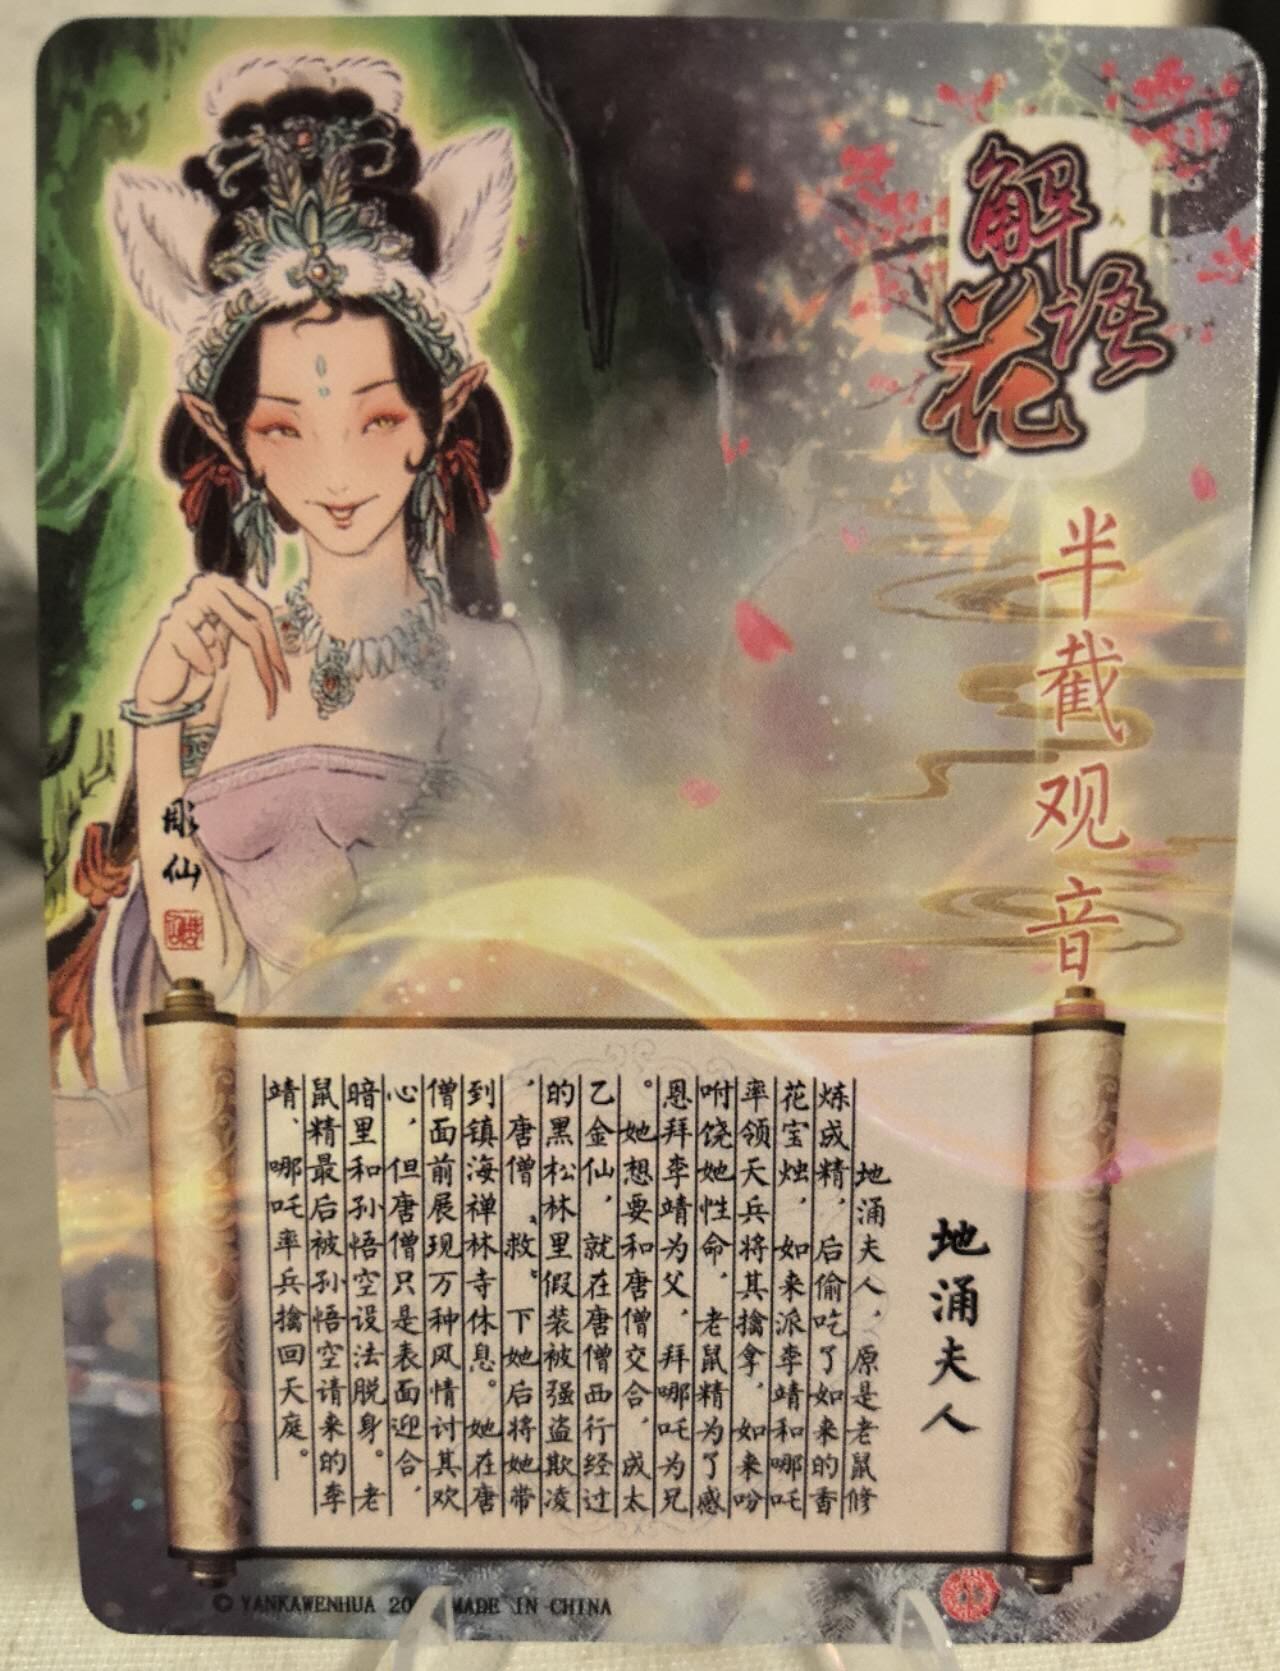 解语花
半截观音
彫仙
地涌夫人
地涌夫人，原是老鼠修
炼成精，后偷吃了如来的香
花宝烛，如来派李靖和哪吒
率领天兵将其擒拿，如来吩
咐饶她性命，老鼠精为了感
恩拜李靖为父，拜哪吒为兄
。她想要和唐僧交合，成太
乙金仙，就在唐僧西行经过
的黑松林里假装被强盗欺凌
，唐僧“救”下她后将她带
到镇海禅林寺休息。她在唐
僧面前展现万种风情讨其欢
心，但唐僧只是表面迎合，
暗里和孙悟空设法脱身。老
鼠精最后被孙悟空请来的李
靖、哪吒率兵擒回天庭。
© YANKAWENHUA 20 MADE IN CHINA